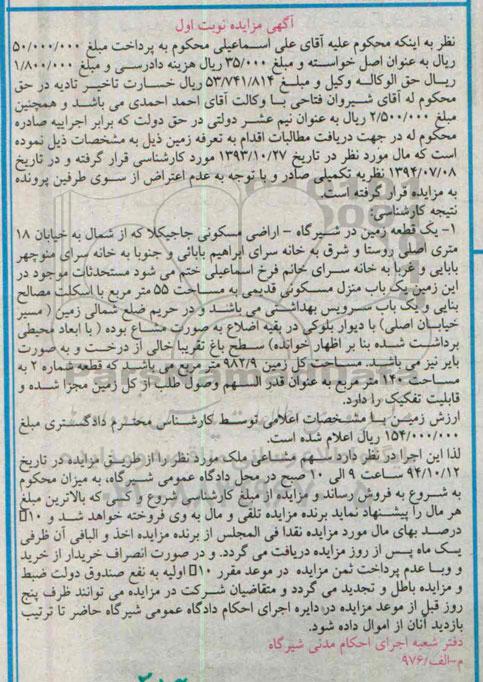 آگهی مزایده نوبت اول
نظر به اینکه محکوم علیه آقای علی اسماعیلی محکوم به پرداخت مبلغ ۵۰/۰۰۰/۰۰۰
ریال به عنوان اصل خواسته و مبلغ ۳۵/۰۰۰ ریال هزینه دادرسی و مبلغ ۱/۸۰۰/۰۰۰
ریال حق الوکاله وکیل و مبلغ ۵۳/۷۴۱/۸۱۴ ریال خسارت تاخیر تادیه در حق
محکوم له آقای شیروان فتاحی با وکالت آقای احمد احمدی می باشد و همچنین
مبلغ ۲/۵۰۰/۰۰۰ ریال به عنوان نیم عشر دولتی در حق دولت که برابر اجراییه صادره
محکوم له در جهت دریافت مطالبات اقدام به تعرفه زمین ذیل به مشخصات ذیل نموده
است که مال مورد نظر در تاریخ ۱۳۹۳/۱۰/۲۷ مورد کارشناسی قرار گرفته و در تاریخ
۱۳۹۴/۰۷/۰۸ نظریه تکمیلی صادر و با توجه به عدم اعتراض از سوی طرفین پرونده
به مزایده قرار گرفته است.
نتیجه کارشناسی:
۱- یک قطعه زمین در شیرگاه - اراضی مسکونی جاجیکلا که از شمال به خیابان ۱۸
متری اصلی روستا و شرق به خانه سرای ابراهیم بابائی و جنوبا به خانه سرای منوچهر
بابایی و غربا به خانه سرای خانم فرخ اسماعیلی ختم می شود مستحدثات موجود در
این زمین یک باب منزل مسکونی قدیمی به مساحت ۵۵ متر مربع با اسکلت مصالح
بنایی و یک باب سرویس بهداشتی می باشد و در حریم ضلع شمالی زمین ( مسیر
خیابان اصلی) با دیوار بلوکی در بقیه اضلاع به صورت مشاع بوده ( با ابعاد محیطی
برداشت شده بنا بر اظهار خوانده) سطح باغ تقریبا خالی از درخت و به صورت
بایر نیز می باشد. مساحت کل زمین ۹۸۲/۹ متر مربع می باشد که قطعه شماره ۲ به
مساحت ۱۴۰ متر مربع به عنوان قدر السهم وصول طلب از کل زمین مجزا شده و
قابلیت تفکیک را دارد.
ارزش زمین با مشخصات اعلامی توسط کارشناس محترم دادگستری مبلغ
۱۵۴/۰۰۰/۰۰۰ ریال اعلام شده است.
لذا این اجرا در نظر دارد سهم مشاعی ملک مورد نظر را از طریق مزایده در تاریخ
۹۴/۱۰/۱۲ ساعت ۹ الی ۱۰ صبح در محل دادگاه عمومی شیرگاه، به میزان محکوم
به شروع به فروش رساند و مزایده از مبلغ کارشناسی شروع و کسی که بالاترین مبلغ
هر مال را پیشنهاد نماید برنده مزایده تلقی و مال به وی فروخته خواهد شد و ۱۰□
درصد بهای مال مورد مزایده نقدا فی المجلس از برنده مزایده اخذ و الباقی آن ظرفی
یک ماه پس از روز مزایده دریافت می گردد. و در صورت انصراف خریدار از خرید
و ویا عدم پرداخت ثمن مزایده در موعد مقرر ۱۰□ اولیه به نفع صندوق دولت ضبط
و مزایده باطل و تجدید می گردد و متقاضیان شرکت در مزایده می توانند ظرف پنج
روز قبل از موعد مزایده در دایره اجرای احکام دادگاه عمومی شیرگاه حاضر تا ترتیب
بازدید آنان از اموال داده شود.
دفتر شعبه اجرای احکام مدنی شیرگاه
م-الف/۹۷۶